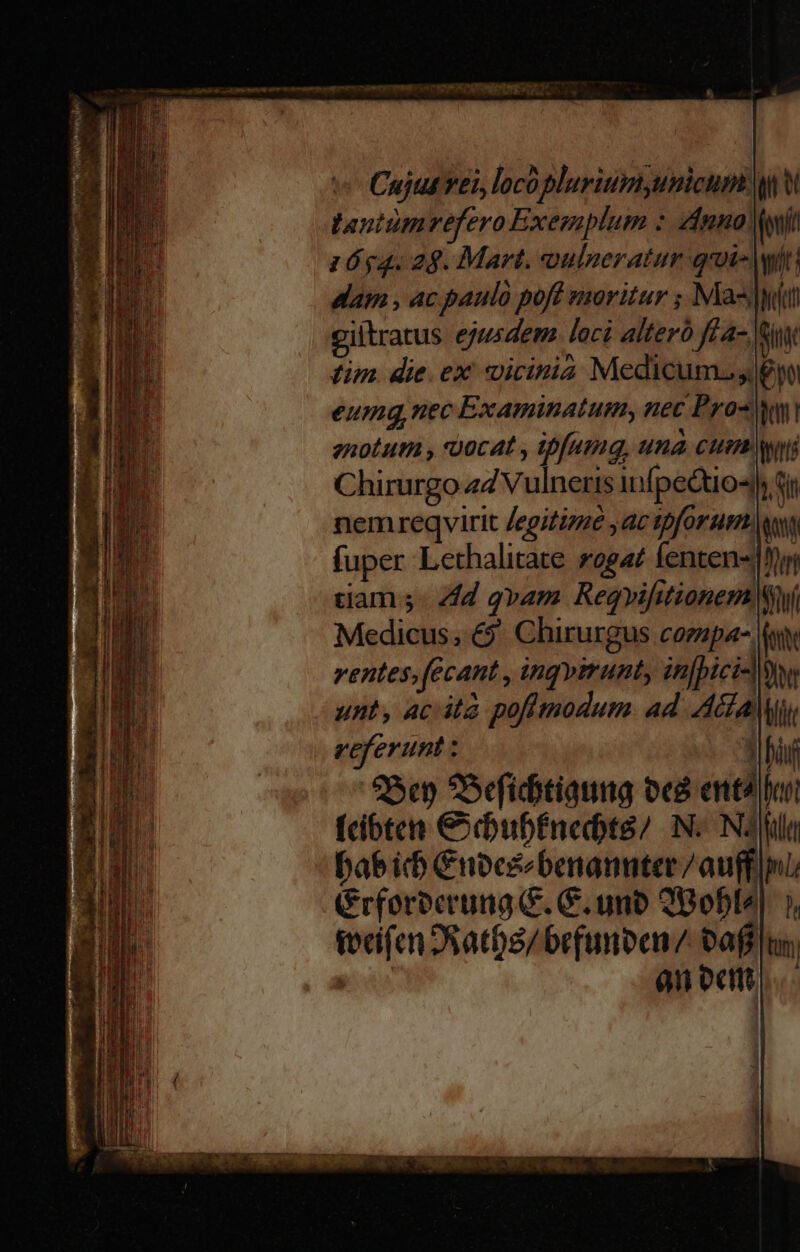 Cujus rei, locò plurium, unicum
tantùm refero Exemplum : Anno
1654. 28. Mart. vulneratur qvi-
dam, ac paulò post moritur ; Ma-
gistratus ejusdem loci alterò sta-
tim die ex viciniâ Medicum,
eumq́, nec Examinatum, nec Pro-
motum, vocat, ipsumq́, unà cum
Chirurgo ad Vulneris inspectio-
nem reqvirit legitimè, ac ipsorum
super Lethalitate rogat senten-
tiam ; Ad qvam Reqvisitionem
Medicus, & Chirurgus compa-
rentes, secant, inqvirunt, inspici-
unt, ac ità postmodum ad Acta
referunt :
Bey Besichtigung des ent-
leibten Schuhknechts/ N. N.
hab ich Endes-benannter/ auff
Erforderung E. E. und Wohl-
weisen Raths/ befunden/ daß
an dem